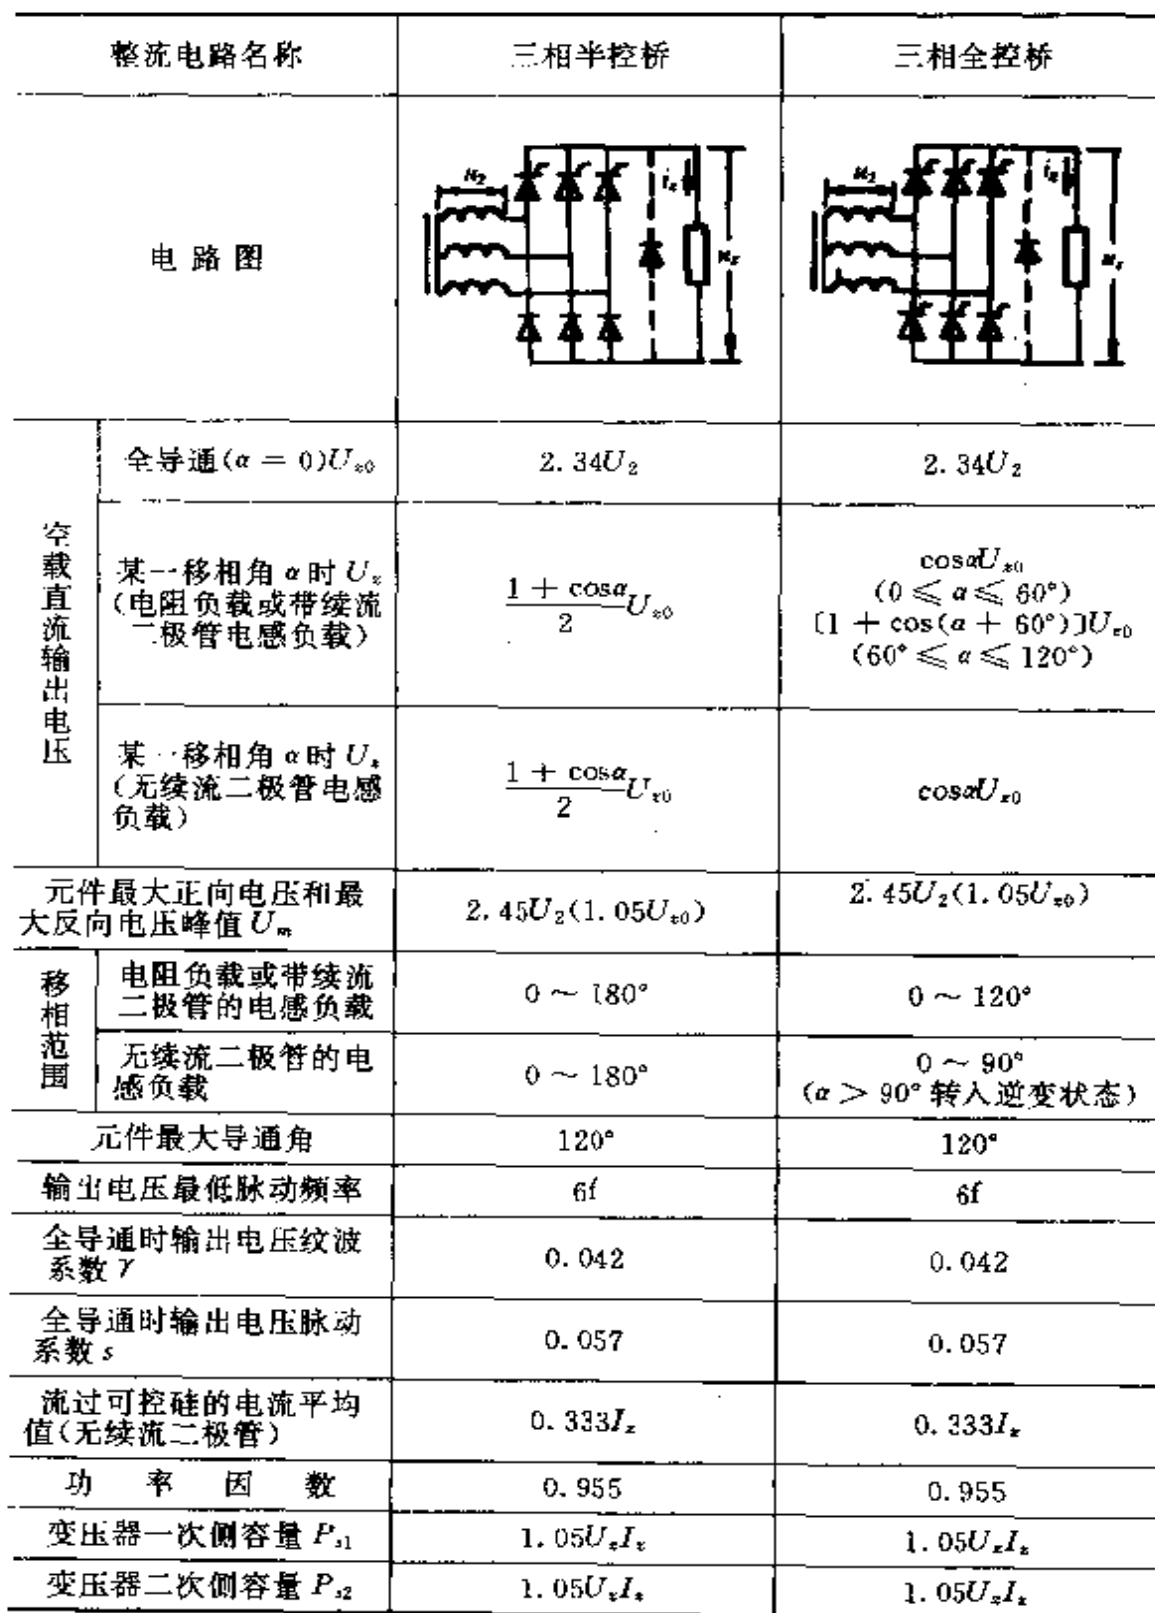 整流电路名称 三相半控桥 三相全控桥
电路图
u₂ iz uz
u₂ iz uz
空载直流输出电压
全导通(α = 0)Uz0 2.34U₂ 2.34U₂
某一移相角 α 时 Uz
(电阻负载或带续流
二极管电感负载)
(1 + cosα)/2 Uz0
cosαUz0
(0 ⩽ α ⩽ 60°)
[1 + cos(α + 60°)]Uz0
(60° ⩽ α ⩽ 120°)
某一移相角 α 时 Uz
(无续流二极管电感
负载)
(1 + cosα)/2 Uz0
cosαUz0
元件最大正向电压和最
大反向电压峰值 Um
2.45U₂(1.05Uz0) 2.45U₂(1.05Uz0)
移相范围
电阻负载或带续流
二极管的电感负载
0 ~ 180° 0 ~ 120°
无续流二极管的电
感负载
0 ~ 180°
0 ~ 90°
(α > 90° 转入逆变状态)
元件最大导通角 120° 120°
输出电压最低脉动频率 6f 6f
全导通时输出电压纹波
系数 γ
0.042 0.042
全导通时输出电压脉动
系数 s
0.057 0.057
流过可控硅的电流平均
值(无续流二极管)
0.333Iz 0.333Iz
功率因数 0.955 0.955
变压器一次侧容量 Ps1 1.05UzIz 1.05UzIz
变压器二次侧容量 Ps2 1.05UzIz 1.05UzIz